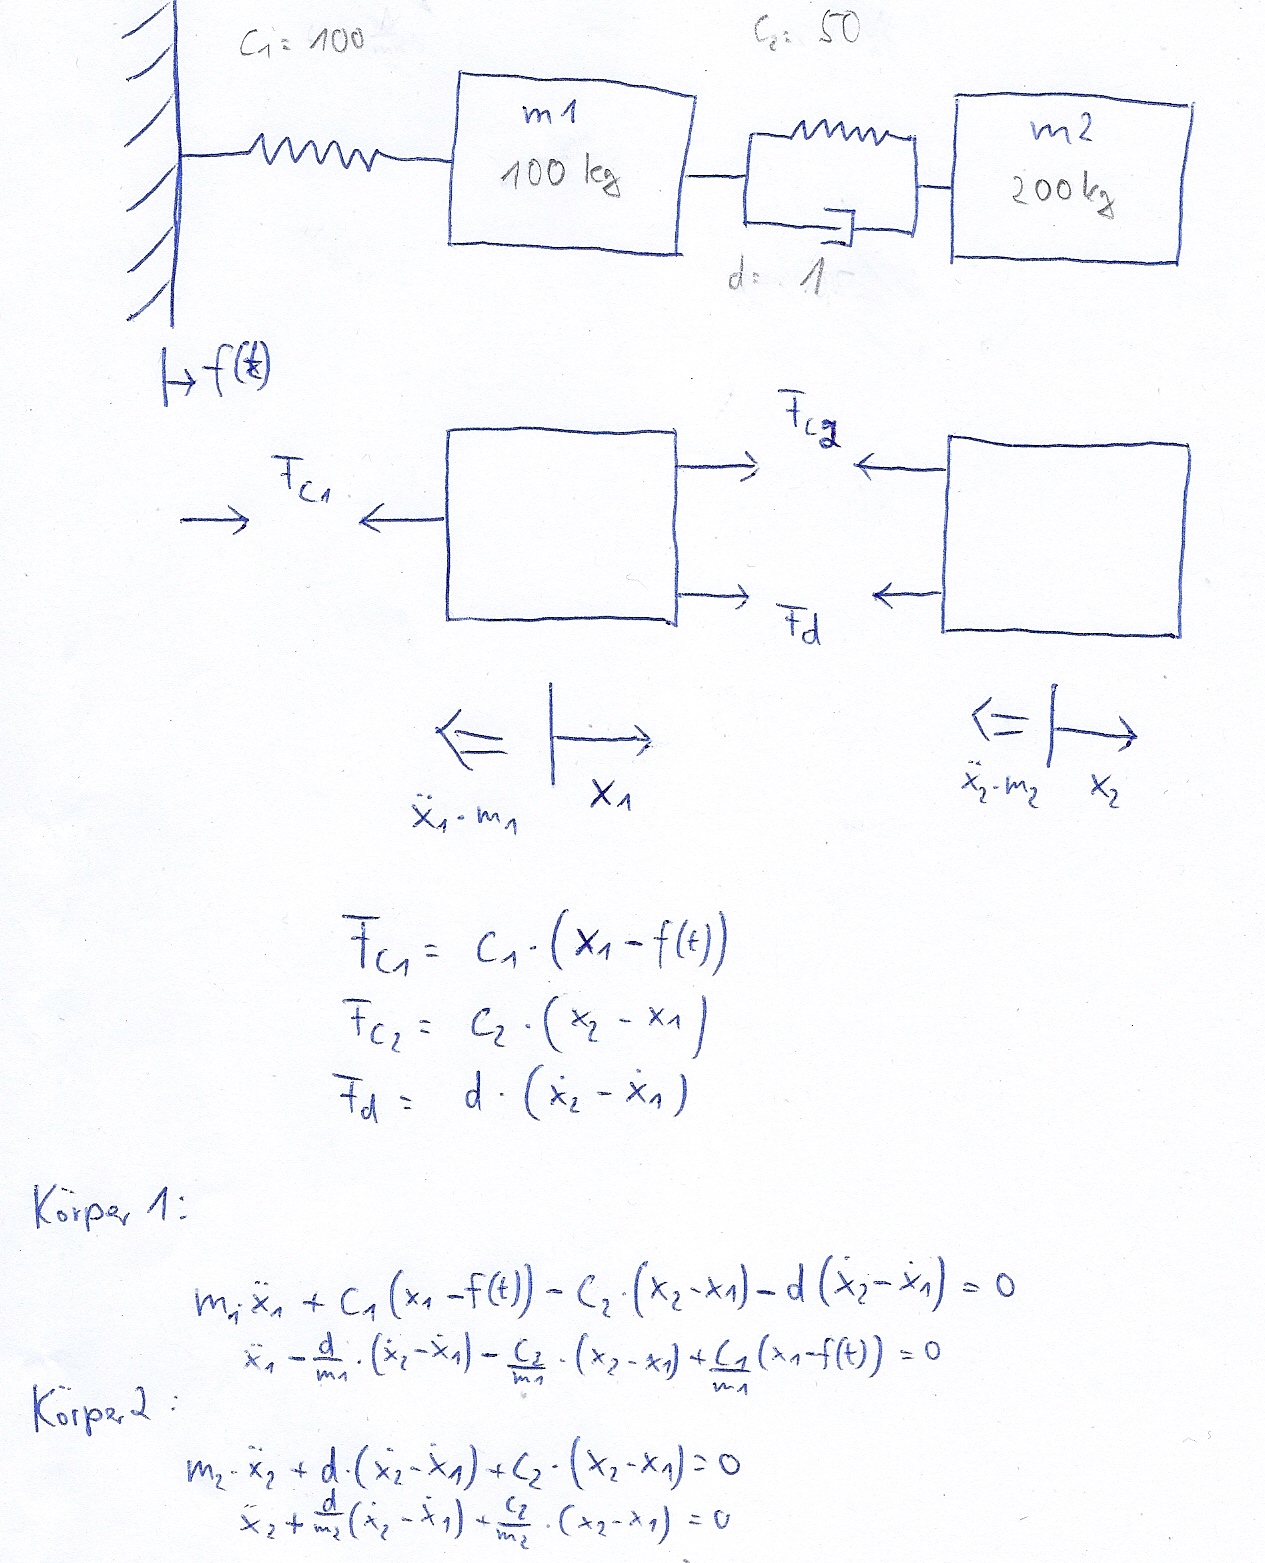 C₁ = 100
C₂ = 50
m1
100 kg
m2
200 kg
d = 1
f(t)
F_C1
F_C2
F_d
ẍ₁·m₁
x₁
ẍ₂·m₂
x₂
F_C1 = C₁·(x₁ - f(t))
F_C2 = C₂·(x₂ - x₁)
F_d = d·(ẋ₂ - ẋ₁)
Körper 1:
m₁·ẍ₁ + C₁(x₁ - f(t)) - C₂·(x₂-x₁) - d(ẋ₂-ẋ₁) = 0
ẍ₁ - d/m₁·(ẋ₂-ẋ₁) - C₂/m₁·(x₂-x₁) + C₁/m₁(x₁-f(t)) = 0
Körper 2:
m₂·ẍ₂ + d·(ẋ₂-ẋ₁) + C₂·(x₂-x₁) = 0
ẍ₂ + d/m₂(ẋ₂-ẋ₁) + C₂/m₂·(x₂-x₁) = 0